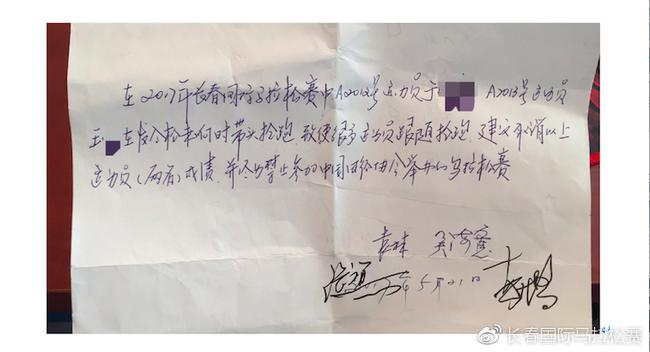 在2017年长春国际马拉松赛中A2012号运动员于 A2013号运动员
王 在发令枪未响时带头抢跑,致使很多运动员跟随抢跑,建议取消以上
运动员(两名)成绩,并终身禁止参加中国田径协会举办的马拉松赛
年5月21日
@长春国际马拉松赛